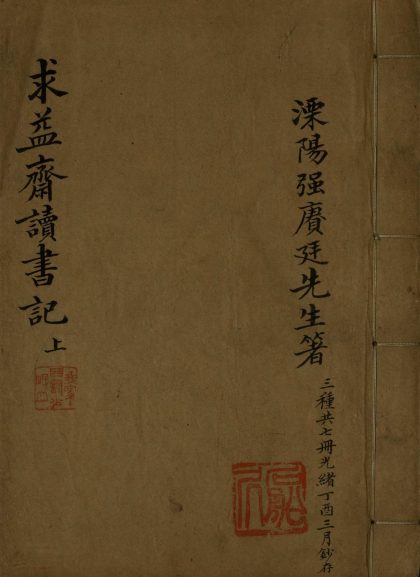 溧陽强賡廷先生箸
三種共七冊光緒丁酉三月鈔存
求益齋讀書記 上